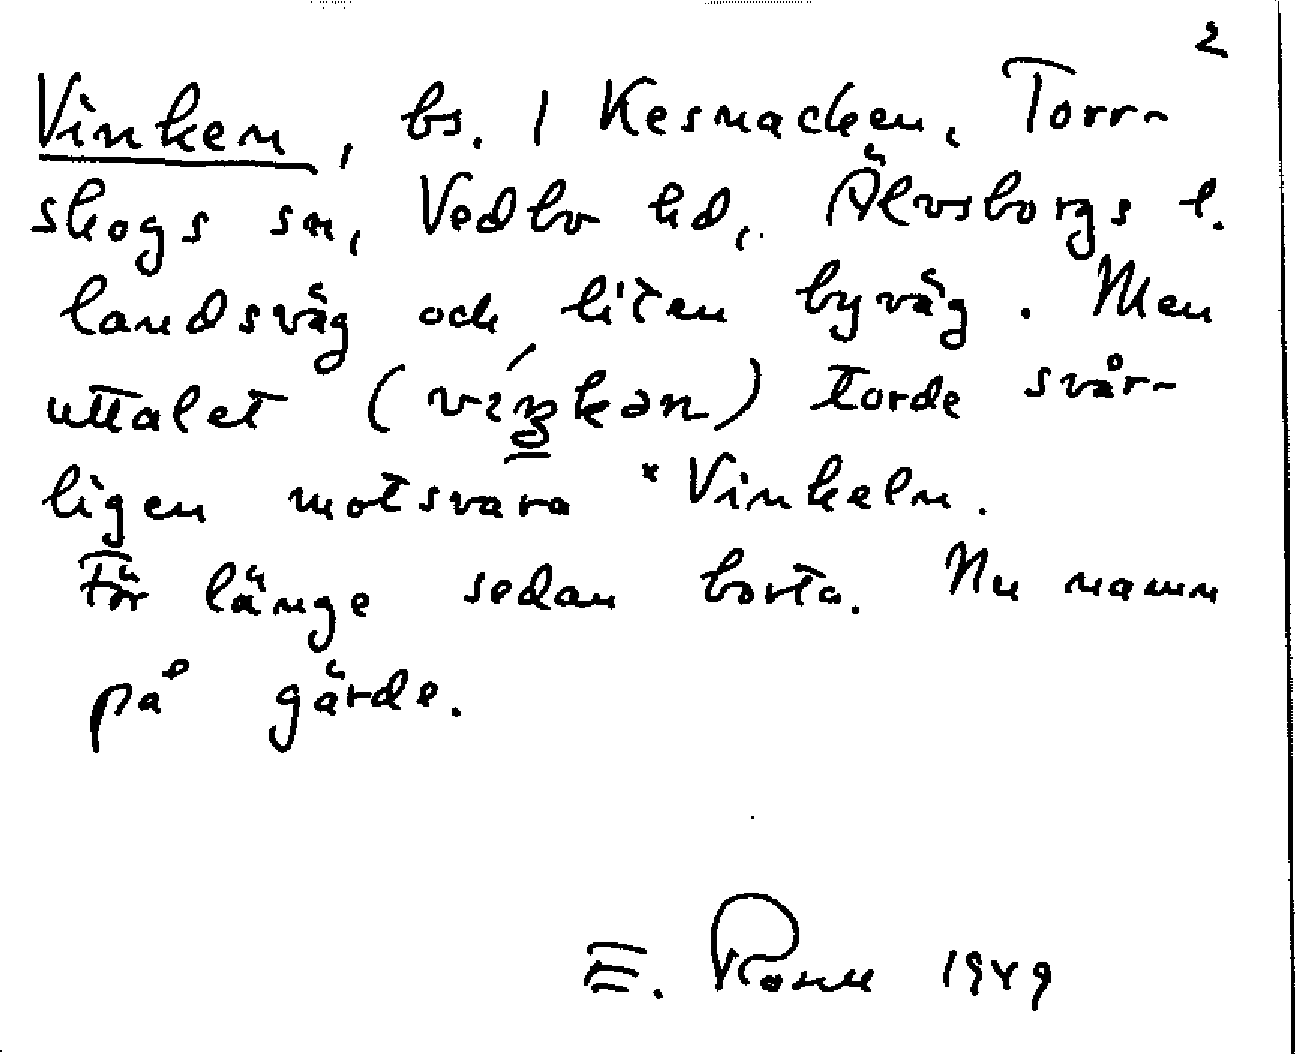 2
Vinken, bs. 1 Kesnacken, Torr-
skogs sn, Vedbo hd, Älvsborgs l.
landsväg och liten byväg. Men
uttalet (víŋkən) torde svår-
ligen motsvara *Vinkeln.
För länge sedan borta. Nu namn
på gärde.
E. 1949